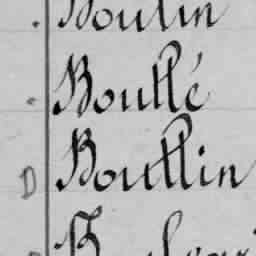 Boulin
Boullé
D Boullin